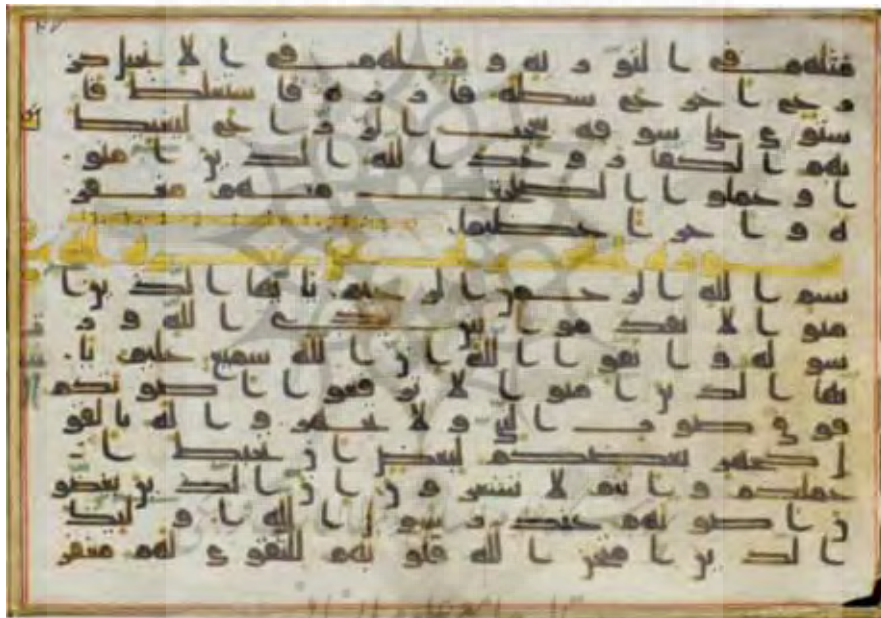 مثلهم في التورية ومثلهم في الانجيل كز
رع اخرج شطه فازره فاستغلظ فا
ستوى على سوقه يعجب الزراع ليغيظ
بهم الكفار وعد الله الذين امنو
ا وعملوا الصلحت منهم مغفر
ة واجرا عظيما
سورة
بسم الله الرحمن الرحيم يايها الذين ا
منوا لا تقدموا بين يدي الله ور
سوله واتقوا الله ان الله سميع عليم يا
يها الذين امنوا لا ترفعوا اصوتكم
فوق صوت النبي ولا تجهروا له بالقو
ل كجهر بعضكم لبعض ان تحبط ا
عملكم وانتم لا تشعرون ان الذين يغضو
ن اصوتهم عند رسول الله اولئك
الذين امتحن الله قلوبهم للتقوى لهم مغفر